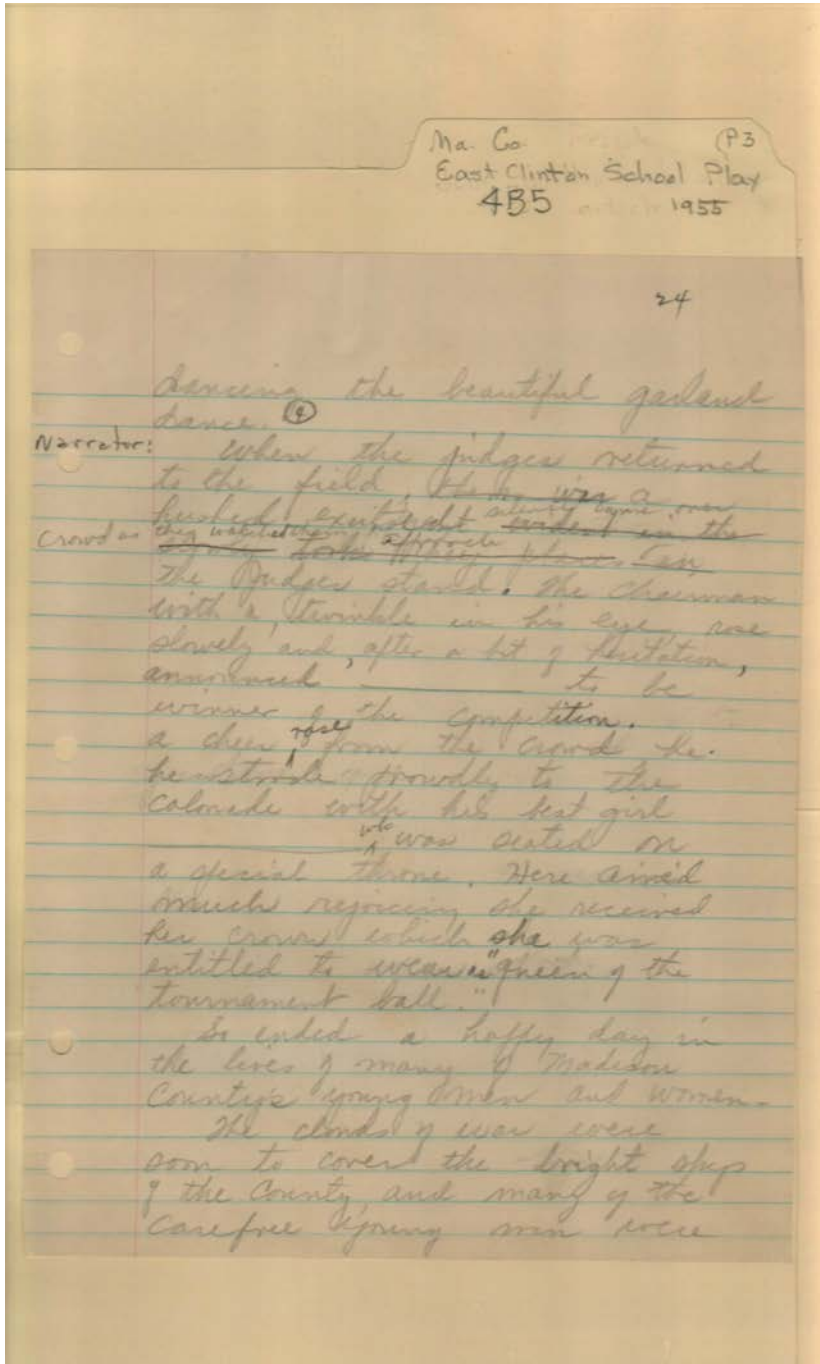 Ma. Co. (P3
East Clinton School Play
4B5 1955
24
dancing the beautiful garland
dance. (9)
Narrator: When the judges returned
to the field, there was a
hushed excitement silently came over
evident in the
Crowd as they watched them approach
took their places in
the Judges stand. The chairman
with a twinkle in his eye, rose
slowly and, after a bit of hesitation,
announced ________ to be
winner of the competition.
a cheer rose from the crowd he.
he strode proudly to the
colonade with his best girl
________ who was seated on
a special throne. Here amid
much rejoicing she received
her crown which she was
entitled to wear as "queen of the
tournament ball."
So ended a happy day in
the lives of many of Madison
County's young men and women.
The clouds of war were
soon to cover the bright skys
of the County, and many of the
carefree young men were